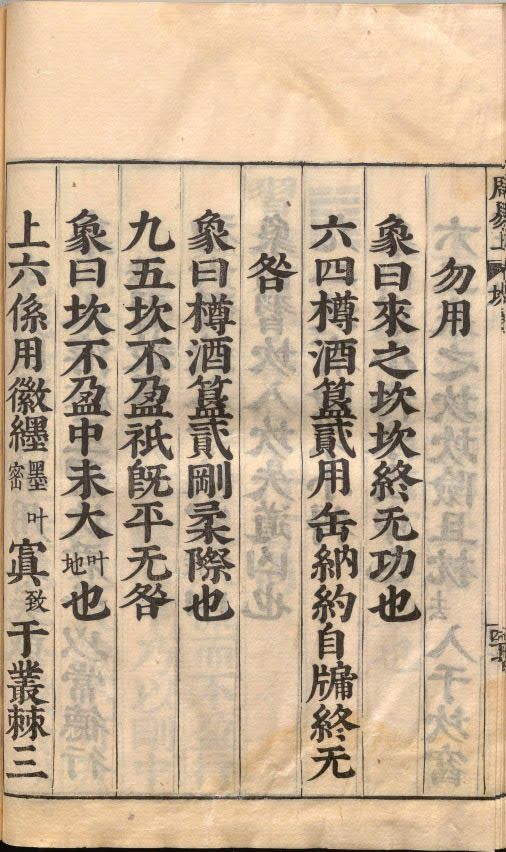 勿用
象曰來之坎坎終无功也
六四樽酒簋貳用缶納約自牖終无
咎
象曰樽酒簋貳剛柔際也
九五坎不盈祇旣平无咎
象曰坎不盈中未大叶地也
上六係用徽纆墨密叶寘致于叢棘三
周易上